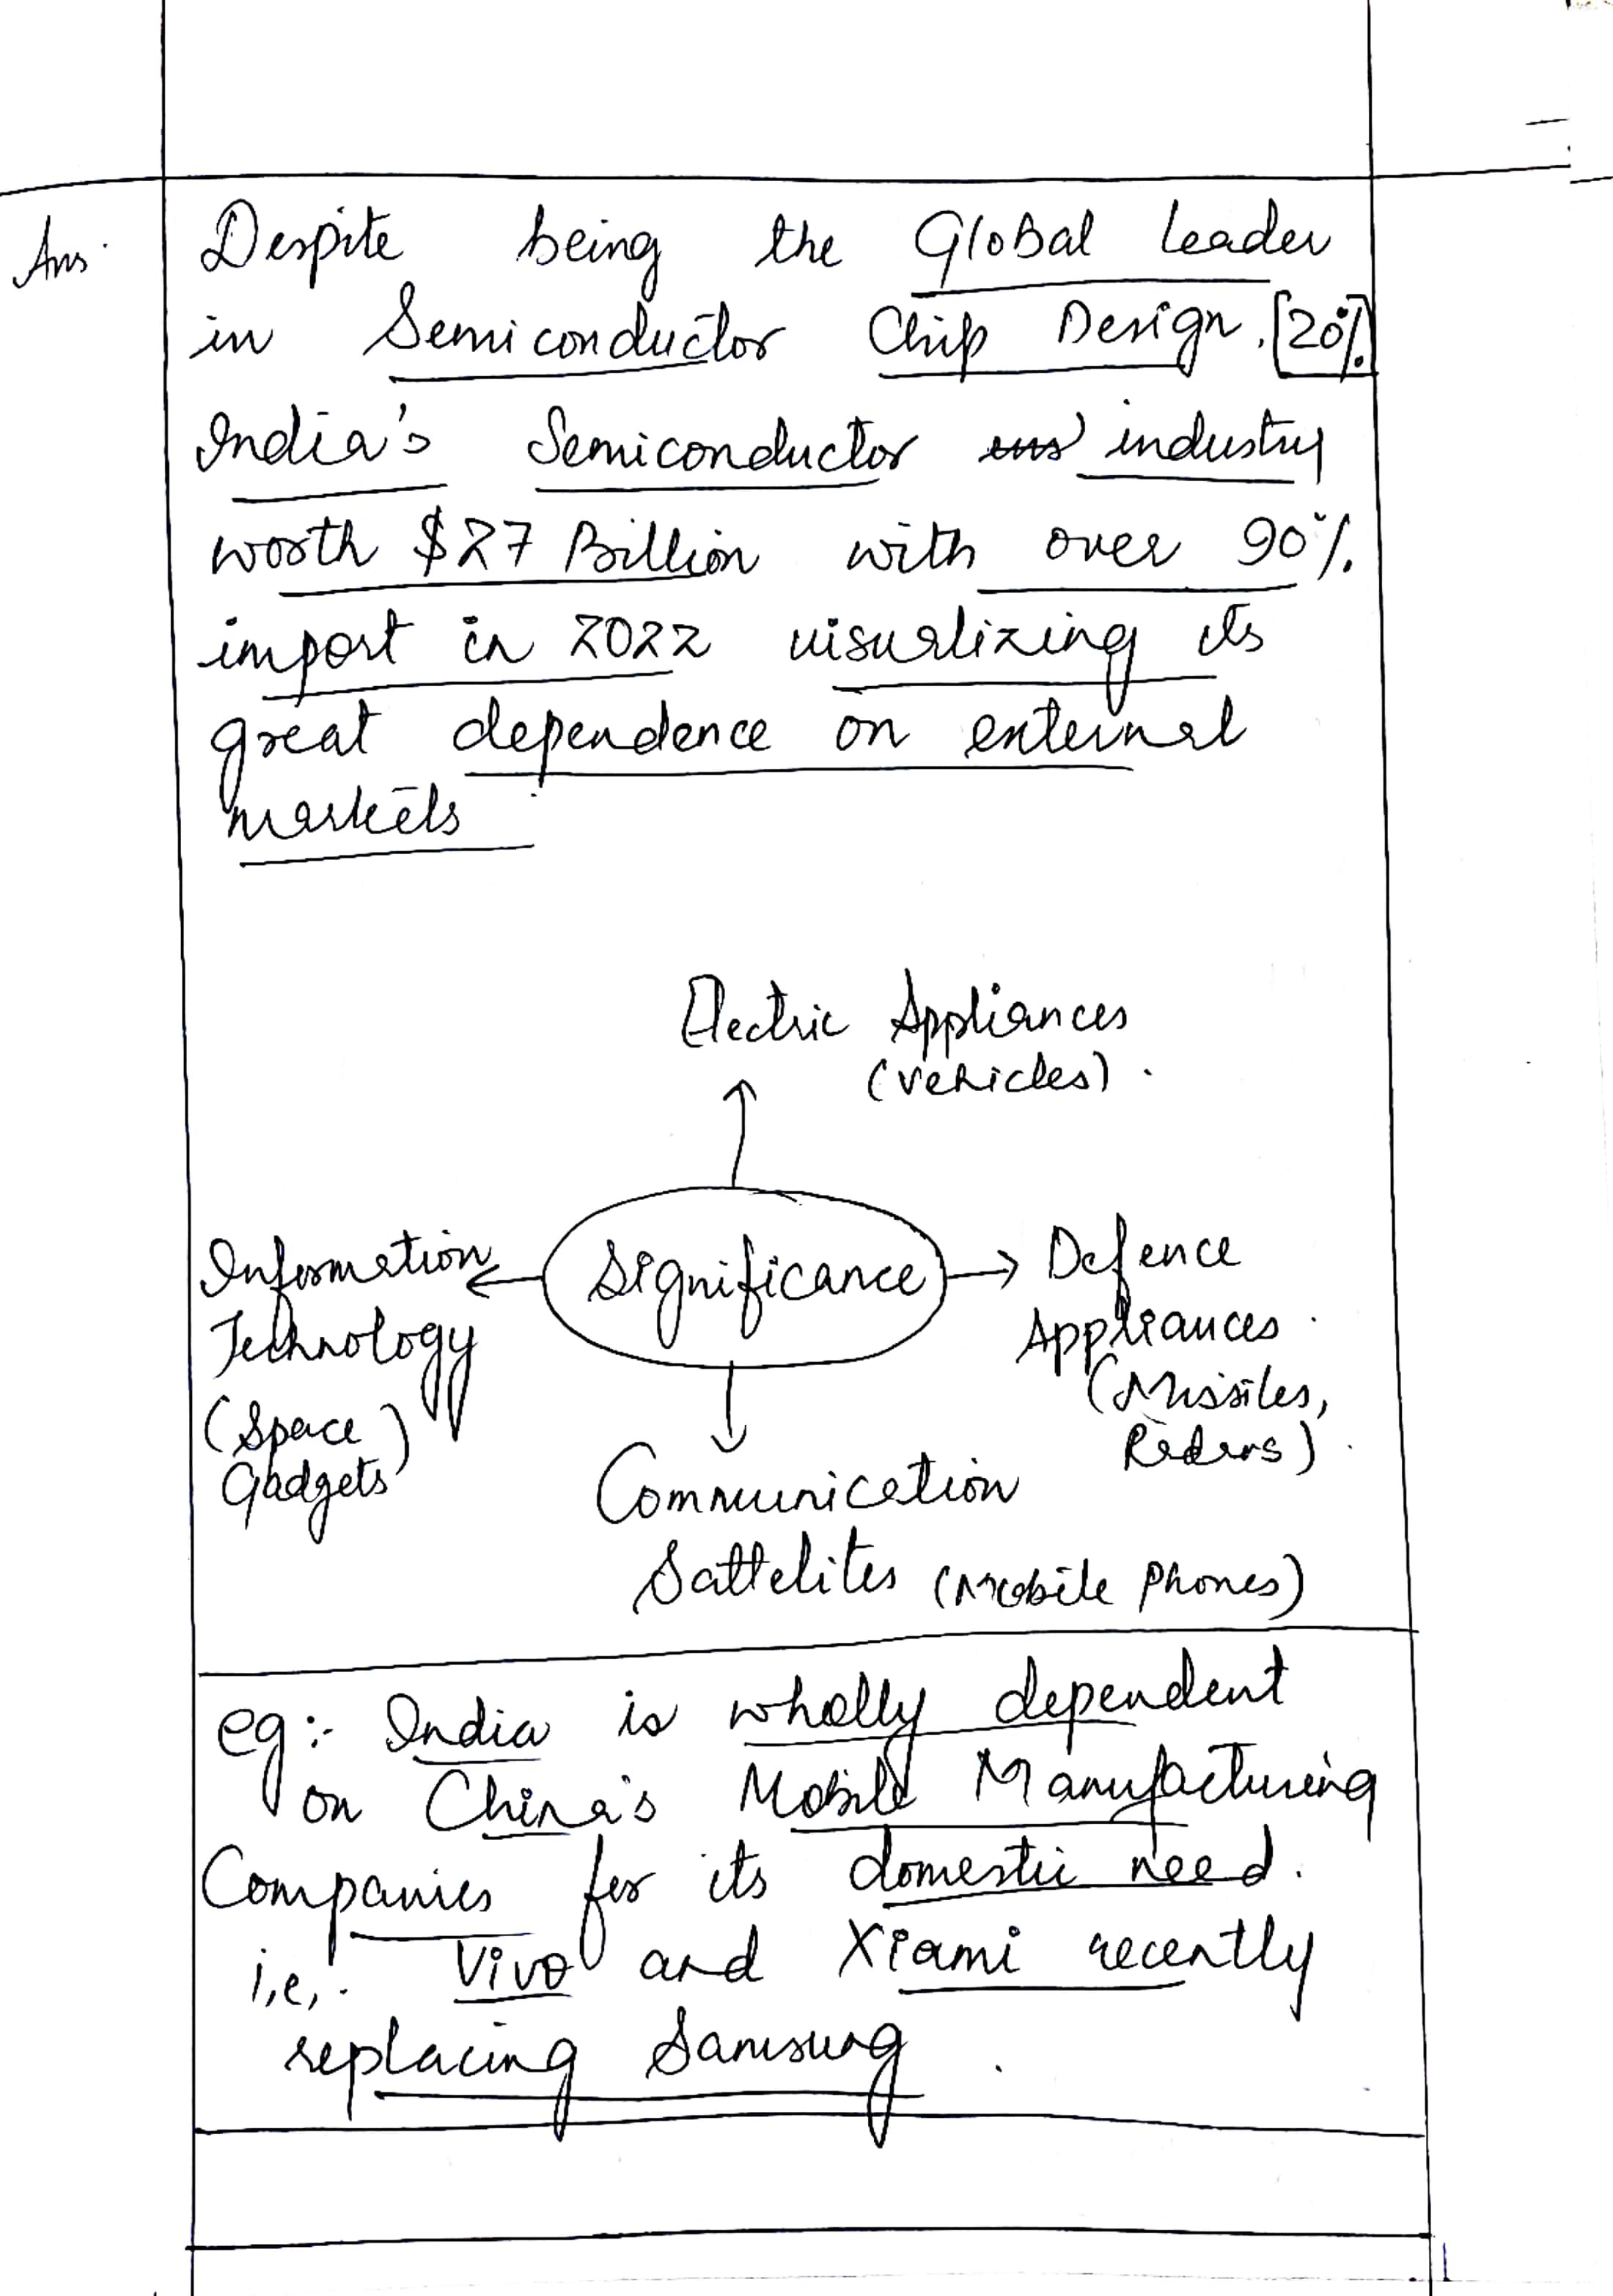 Ans.
Despite being the Global leader
in Semiconductor Chip Design. [20%]
India's Semiconductor industry
worth $27 Billion with over 90%
import in 2022 visualizing its
great dependence on external
markets
Electric Appliances
(vehicles).
Significance
Information
Technology
(Space
Gadgets)
Defence
Appliances
(Missiles,
Radars).
Communication
Sattelites (Mobile phones)
eg:- India is wholly dependent
on China's Mobile Manufacturing
Companies for its domestic need.
i.e,. Vivo and Xiami recently
replacing Samsung.